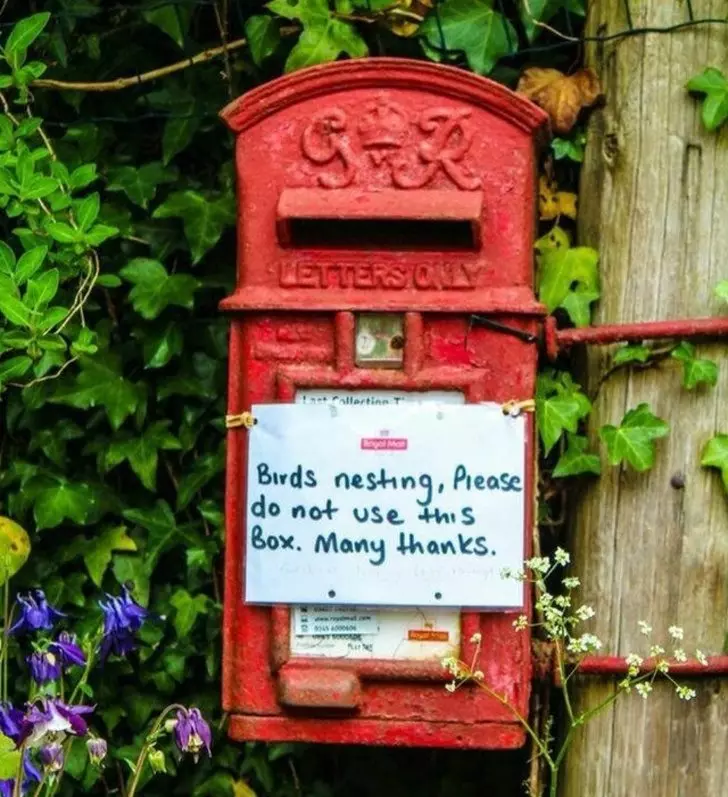 GR
LETTERS ONLY
7
Last Collection
Royal Mail
Birds nesting, Please
do not use this
Box. Many thanks.
www.royalmail.com
Royal Mail